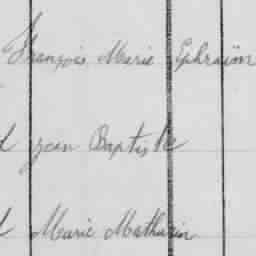 François Marie Ephraïm
jean Baptiste
Marie Mathurin